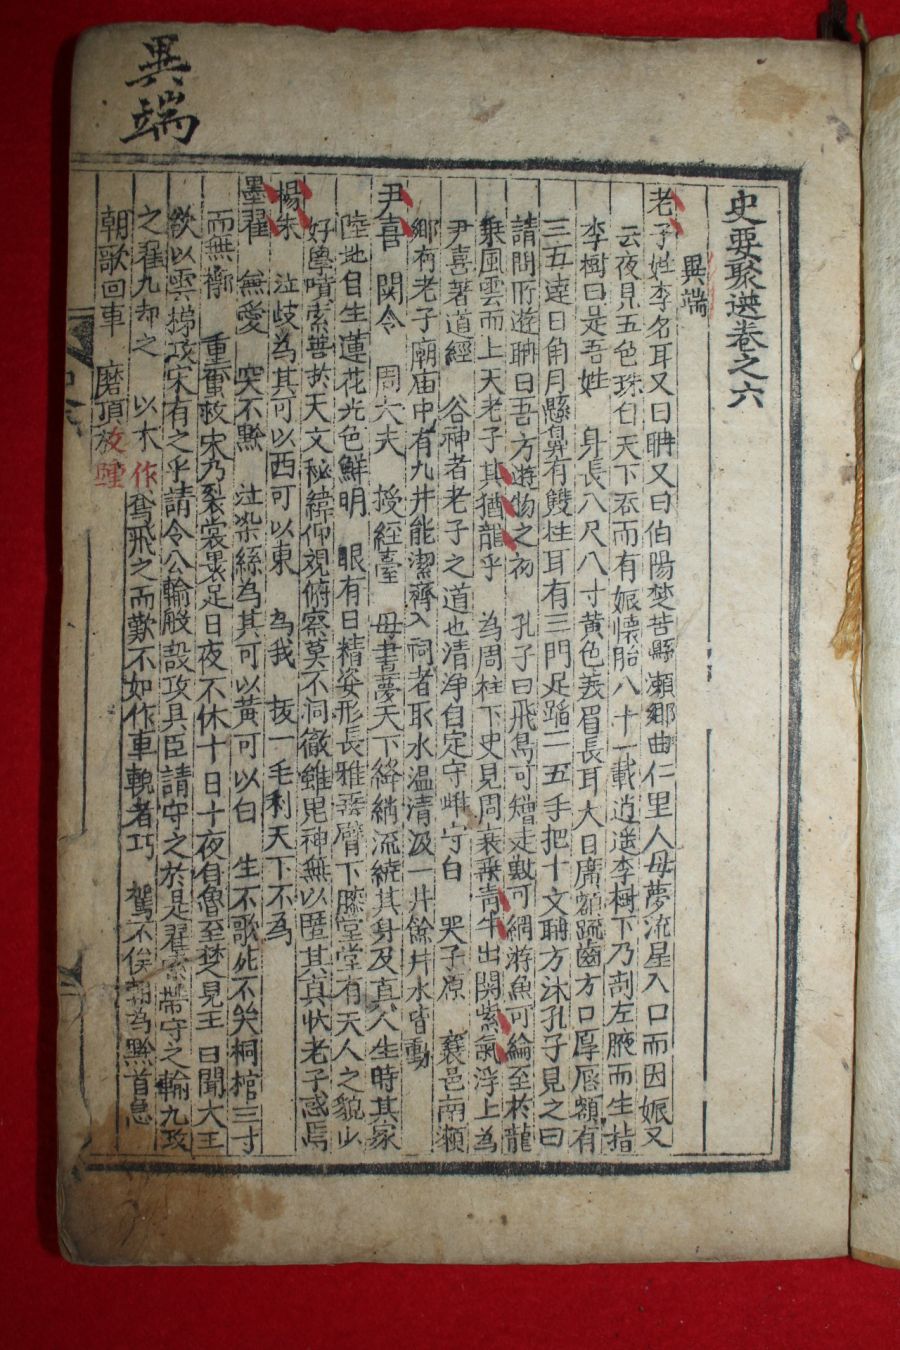 異端
史要聚選卷之六
異端
老子姓李名耳又曰耼又曰伯陽楚苦縣瀨鄉曲仁里人母夢流星入口而因娠又
云夜見五色珠自天下吞而有娠懷胎八十一載逍遥李樹下乃剖左腋而生指
李樹曰是吾姓 身長八尺八寸黃色美眉長耳大目廣額疏齒方口厚唇額有
三五達日角月懸鼻有雙柱耳有三門足蹈二五手把十文耼方沐孔子見之曰
請問所遊耼曰吾方遊物之初 孔子曰飛鳥可矰走獸可網游魚可綸至於龍
乘風雲而上天老子其猶龍乎 為周柱下史見周衰乘靑牛出関紫氣浮上為
尹喜著道經 谷神者老子之道也清浄自定守雌守白 哭子原 襄邑南瀨
鄉有老子廟庙中有九井能潔齊入祠者取水温清汲一井餘井水皆動
尹喜 関令 周大夫 授經臺 母晝夢天下絳綃流繞其身及真人生時其家
陸地自生蓮花光色鮮明 眼有日精姿形長雅垂臂下膝堂堂有天人之貌少
好學嘖索善於天文秘緯仰視俯察莫不洞徹雖鬼神無以匿其真狀老子惑焉
楊朱 泣歧為其可以西可以東 為我 拔一毛利天下不為
墨翟 無愛 突不黔 泣染絲為其可以黃可以白 生不歌死不哭桐棺三寸
而無槨 重重救宋乃裂裳裹足日夜不休十日十夜自魯至楚見王曰聞大王
欲以雲梯攻宋有之乎請令公輸般設攻具臣請守之於是翟縈帶守之輸九攻
之翟九却之 以木作鳶飛之而歎不如作車輗者巧 駕不俟朝為黔首急
朝歌回車 磨頂放踵